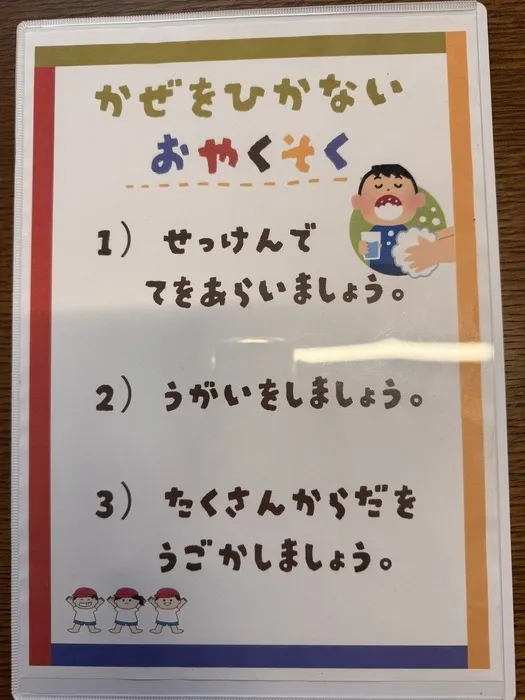 かぜをひかない
おやくそく
1) せっけんで
てをあらいましょう。
2) うがいをしましょう。
3) たくさんからだを
うごかしましょう。